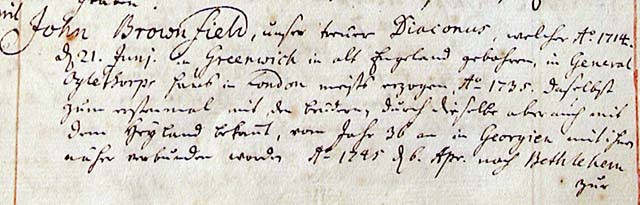 John Brownfield, unser treuer Diaconus, welcher Ao. 1714.
d. 21. Junj. in Greenwich in alt Engeland gebohren, in General
Oglethorps Haus in London meists erzogen, Ao. 1735. daselbst
zum erstenmal mit den Brüdern, durch dieselbe aber auch mit
dem Heyland bekannt, vom Jahr 36 an in Georgien mit ihnen
näher verbunden worden Ao. 1745 d. 6. Apr. nach Bethlehem
zur